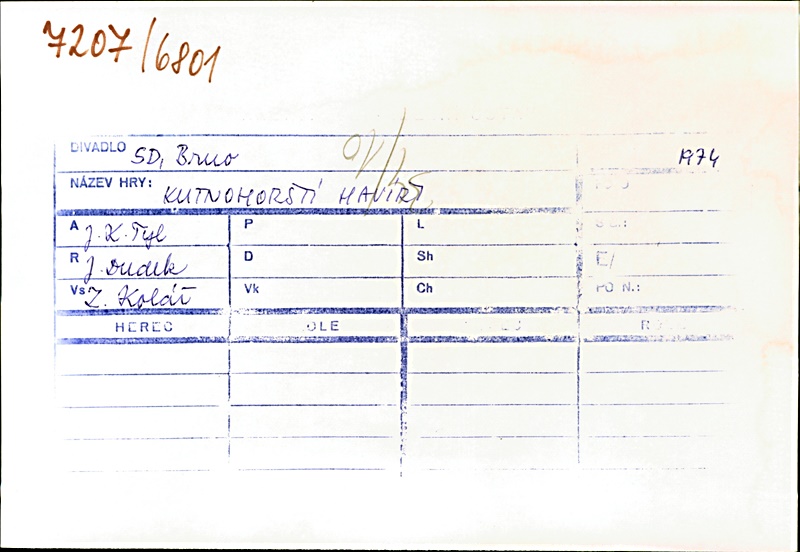 7207/6801
DIVADLO SD, Brno 1974
NÁZEV HRY: KUTNOHORŠTÍ HAVÍŘI
A J. K. Tyl P L
R J. Dudek D Sh
Vs Z. Kolář Vk Ch
HEREC